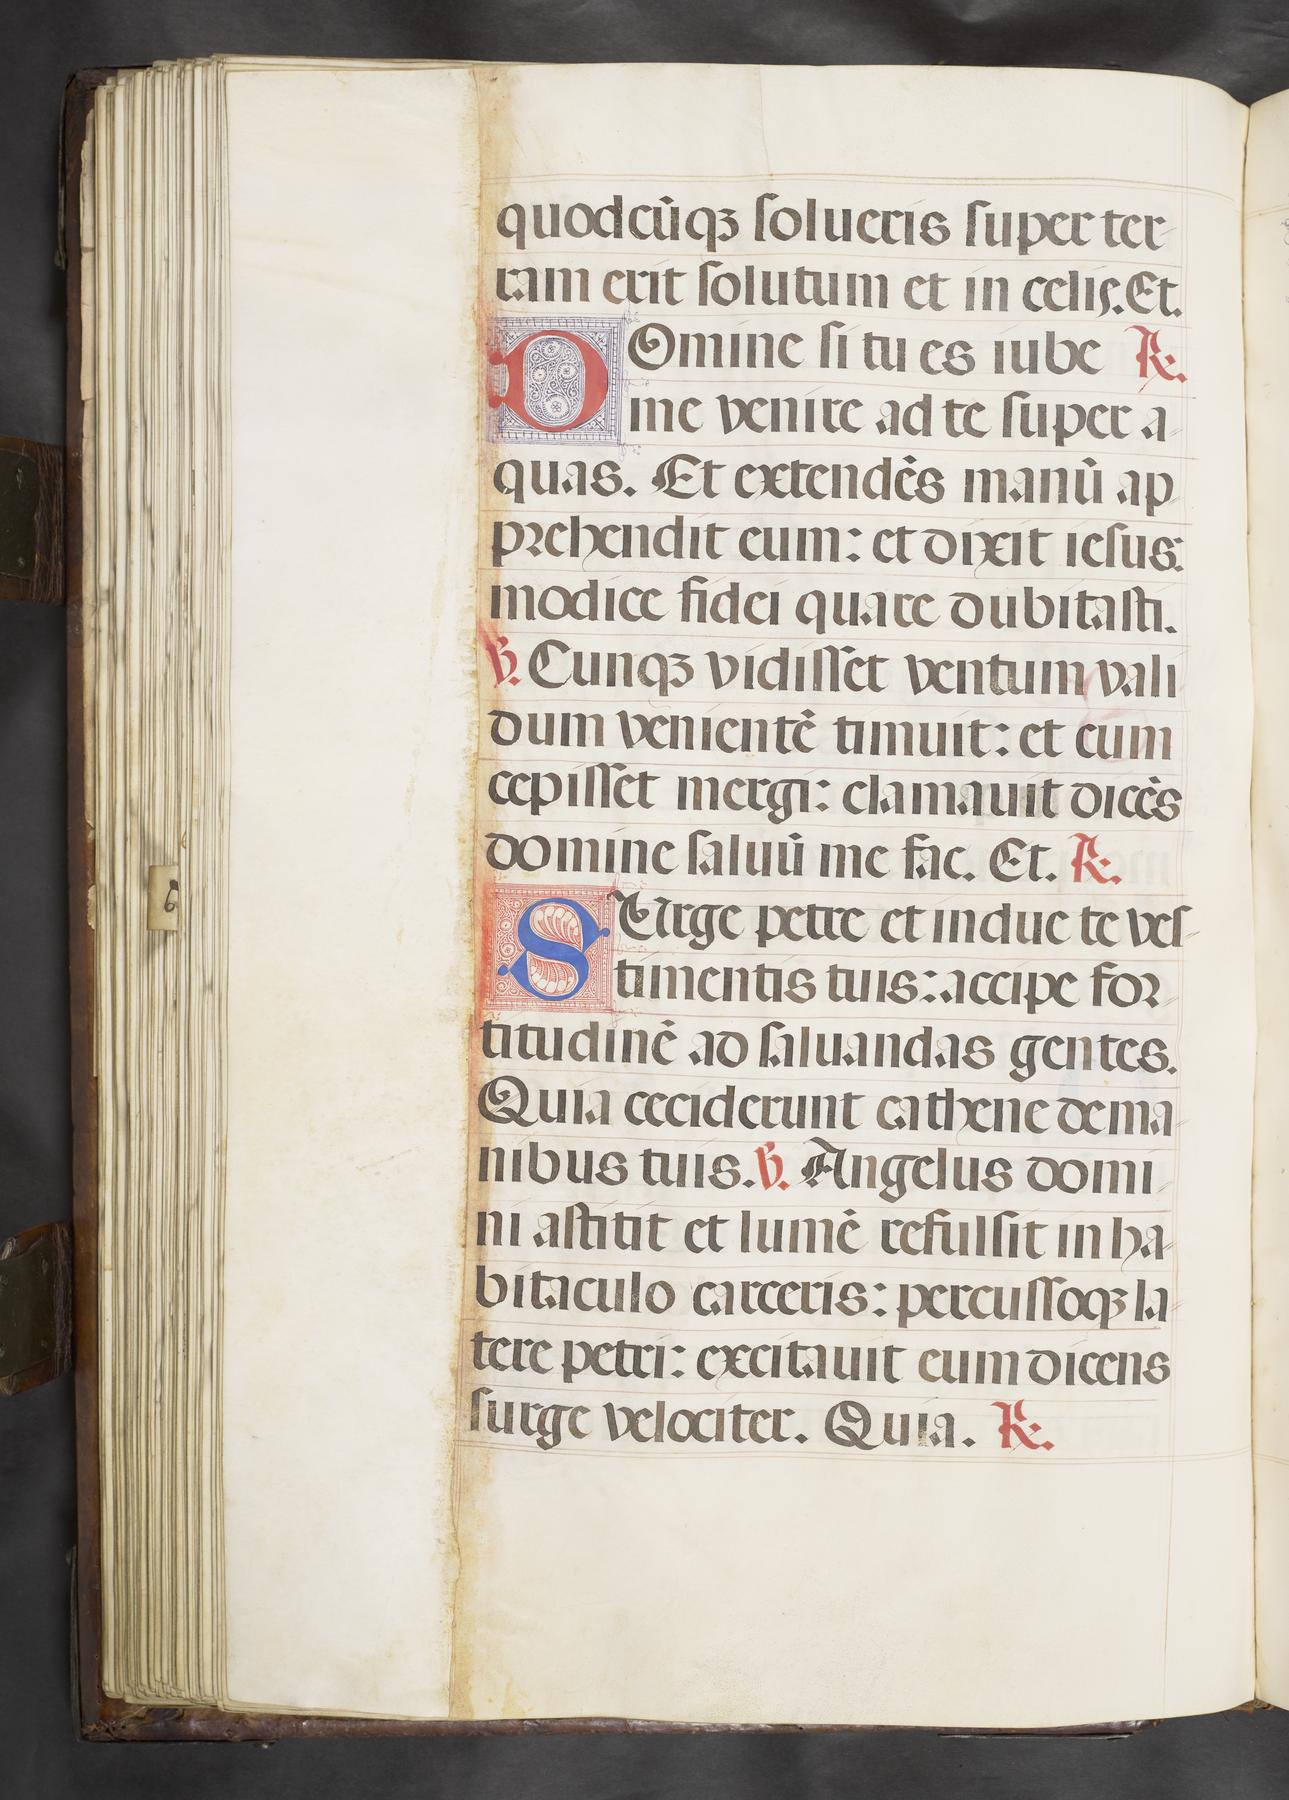 quodcūqꝫ solueris super ter
ram erit solutum et in celis. Et.
DOmine si tu es iube ℟.
me venire ad te super a
quas. Et extendēs manū ap
prehendit eum: et dixit iesus:
modice fidei quare dubitasti.
℣. Cunqꝫ vidisset ventum vali
dum venientē timuit: et cum
cepisset mergi: clamauit dicēs
domine saluū me fac. Et. ℟.
SUrge petre et indue te ves
timentis tuis: accipe for
titudinē ad saluandas gentes.
Quia ceciderunt cathene de ma
nibus tuis. ℣. Angelus domi
ni astitit et lumē refulsit in ha
bitaculo carceris: percussoqꝫ la
tere petri: excitauit eum dicens
surge velociter. Quia. ℟.
6